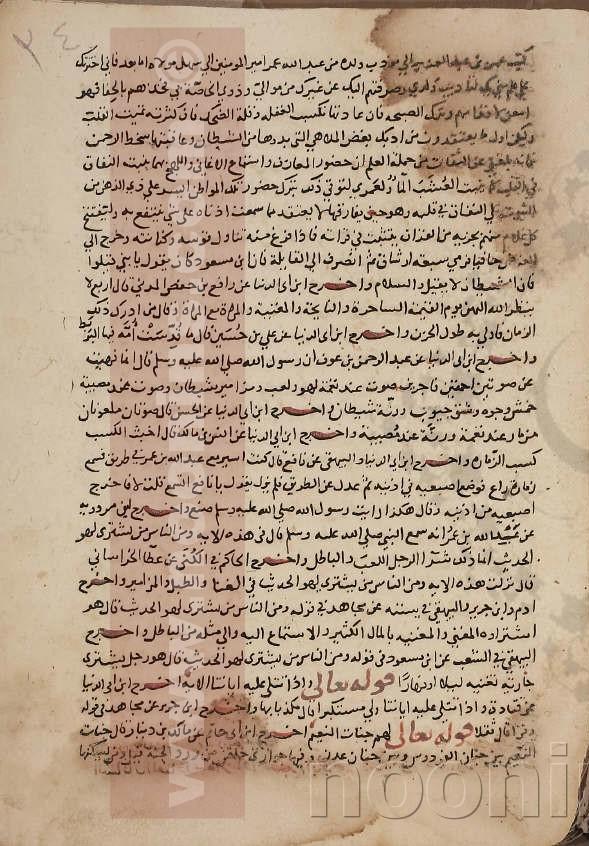 كتب عمر بن عبد العزيز الى مودب ولده من عبد الله عمر امير المومنين الى سهل مولاه اما بعد فانى اخترتك
على علم منى بك لتاديب ولدي وصرفتهم اليك عن غيرك من موالي وذوي الخاصة بي فخذهم بالجفا فهو
امعن لاقدامهم وترك الصبحة فان عادتها تكسب الغفلة وقلة الضحك فان كثرته تميت القلب
وليكن اول ما يعتقدون من ادبك بغض الملاهي التى بدوها من الشيطان وعاقبتها سخط الرحمن
فانه بلغني عن الثقات من حملة العلم ان حضور المعازف واستماع الاغاني واللهج بها ينبت النفاق
في القلب كما ينبت العشب الما ولعمري لتوقي ذلك بترك حضور تلك المواطن ايسر على ذي الذهن من
الثبوت على النفاق في قلبه وهو حين يفارقها لا يعتقد مما سمعت اذناه على شي ينتفع به وليفتتح
كل غلام منهم بجزء من القران يتثبت في قراته فاذا فرغ منه تناول قوسه وكنانته وخرج الى
الغرض حافيا فرمي سبعة ارشاق ثم انصرف الى القايلة فان ابن مسعود كان يقول يا بني قيلوا
فان الشيطان لا يقيل والسلام واخرج ابن ابي الدنيا عن رافع بن حفص المدني قال اربع لا
ينظر الله اليهن يوم القيمة الساحرة والنايحة والمغنية والمراة مع المراة وقال من ادرك ذلك
الزمان فاولى به طول الحزن واخرج ابن ابي الدنيا عن علي بن حسين قال ما قدست امة فيها البربط
واخرج ابن ابي الدنيا عن عبد الرحمن بن عوف ان رسول الله صلى الله عليه وسلم قال انما نهيت
عن صوتين احمقين فاجرين صوت عند نغمة لهو ولعب ومزامير شيطان وصوت عند مصيبة
خمش وجوه وشق جيوب ورنة شيطان واخرج ابن ابي الدنيا عن الحسن قال صوتان ملعونان
مزمار عند نغمة ورنة عند مصيبة واخرج ابن ابي الدنيا عن انس بن مالك قال اخبث الكسب
كسب الزمارة واخرج ابن ابي الدنيا والبيهقي عن نافع قال كنت اسير مع عبد الله بن عمر في طريق فسمع
زمارة راع فوضع اصبعيه في اذنيه ثم عدل عن الطريق فلم يزل يقول يا نافع اتسمع قلت لا فاخرج
اصبعيه من اذنيه وقال هكذا رايت رسول الله صلى الله عليه وسلم صنع واخرج ابن مردويه
عن عبد الله بن عمر انه سمع النبي صلى الله عليه وسلم قال في هذه الاية ومن الناس من يشترى لهو
الحديث انما ذلك شرا الرجل اللعب والباطل واخرج الحاكم في الكنى عن عطا الخراساني
قال نزلت هذه الاية ومن الناس من يشترى لهو الحديث في الغنا والطبل والمزامير واخرج
ادم وابن جرير والبيهقي في سننه عن مجاهد في قوله ومن الناس من يشترى لهو الحديث قال هو
اشتراوه المغني والمغنية بالمال الكثير والاستماع اليه والي مثله من الباطل واخرج
البيهقي في الشعب عن ابن مسعود في قوله ومن الناس من يشترى لهو الحديث قال هو رجل يشترى
جارية تغنيه ليلا او نهارا قوله تعالى واذا تتلى عليه اياتنا الاية اخرج ابن ابي الدنيا
عن قتادة واذا تتلى عليه اياتنا ولى مستكبرا قال مكذبا بها واخرج ابن جرير عن مجاهد في قوله
وقرا قال ثقلا قوله تعالى لهم جنات النعيم اخرج ابن ابي حاتم عن مالك بن دينار قال جنات
النعيم بين جنان الفردوس وبين جنان عدن وفيها جواري خلقن من ورد الجنة قيل ومن يسكنها
noonin